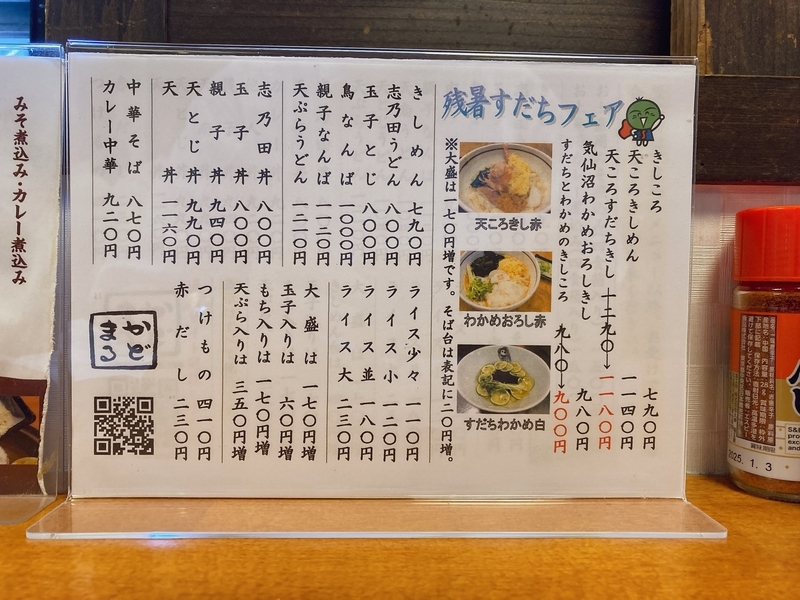 残暑すだちフェア
きしころ 七九〇円
天ころきしめん 一一四〇円
天ころすだちきし 一二九〇→一一八〇円
気仙沼わかめおろしきし 九八〇円
すだちとわかめのきしころ 九八〇→九〇〇円
天ころきし赤
わかめおろし赤
すだちわかめ白
※大盛は一七〇円増です。そば台は表記に二〇円増。
きしめん 七九〇円
志乃田うどん 八〇〇円
玉子とじ 八〇〇円
鳥なんば 一〇〇〇円
親子なんば 一一二〇円
天ぷらうどん 一二一〇円
志乃田丼 八〇〇円
玉子丼 八〇〇円
親子丼 九四〇円
天とじ丼 九九〇円
天丼 一一六〇円
中華そば 八七〇円
カレー中華 九二〇円
ライス少々 一一〇円
ライス小 一二〇円
ライス並 一八〇円
ライス大 二三〇円
大盛は 一七〇円増
玉子入りは 六〇円増
もち入りは 一七〇円増
天ぷら入りは 三五〇円増
つけもの 四一〇円
赤だし 二三〇円
かどまる
みそ煮込み・カレー煮込み
2025.1.3